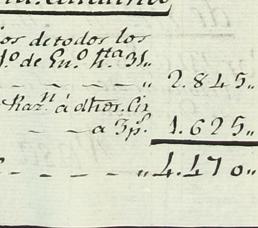 ios de todos los
1.º de En.º h.ta 31„
– – – „ 2.845„
Raz.n á dhos. Cir
– – – a 3 p.s 1.625„
– – – „ 4.470„